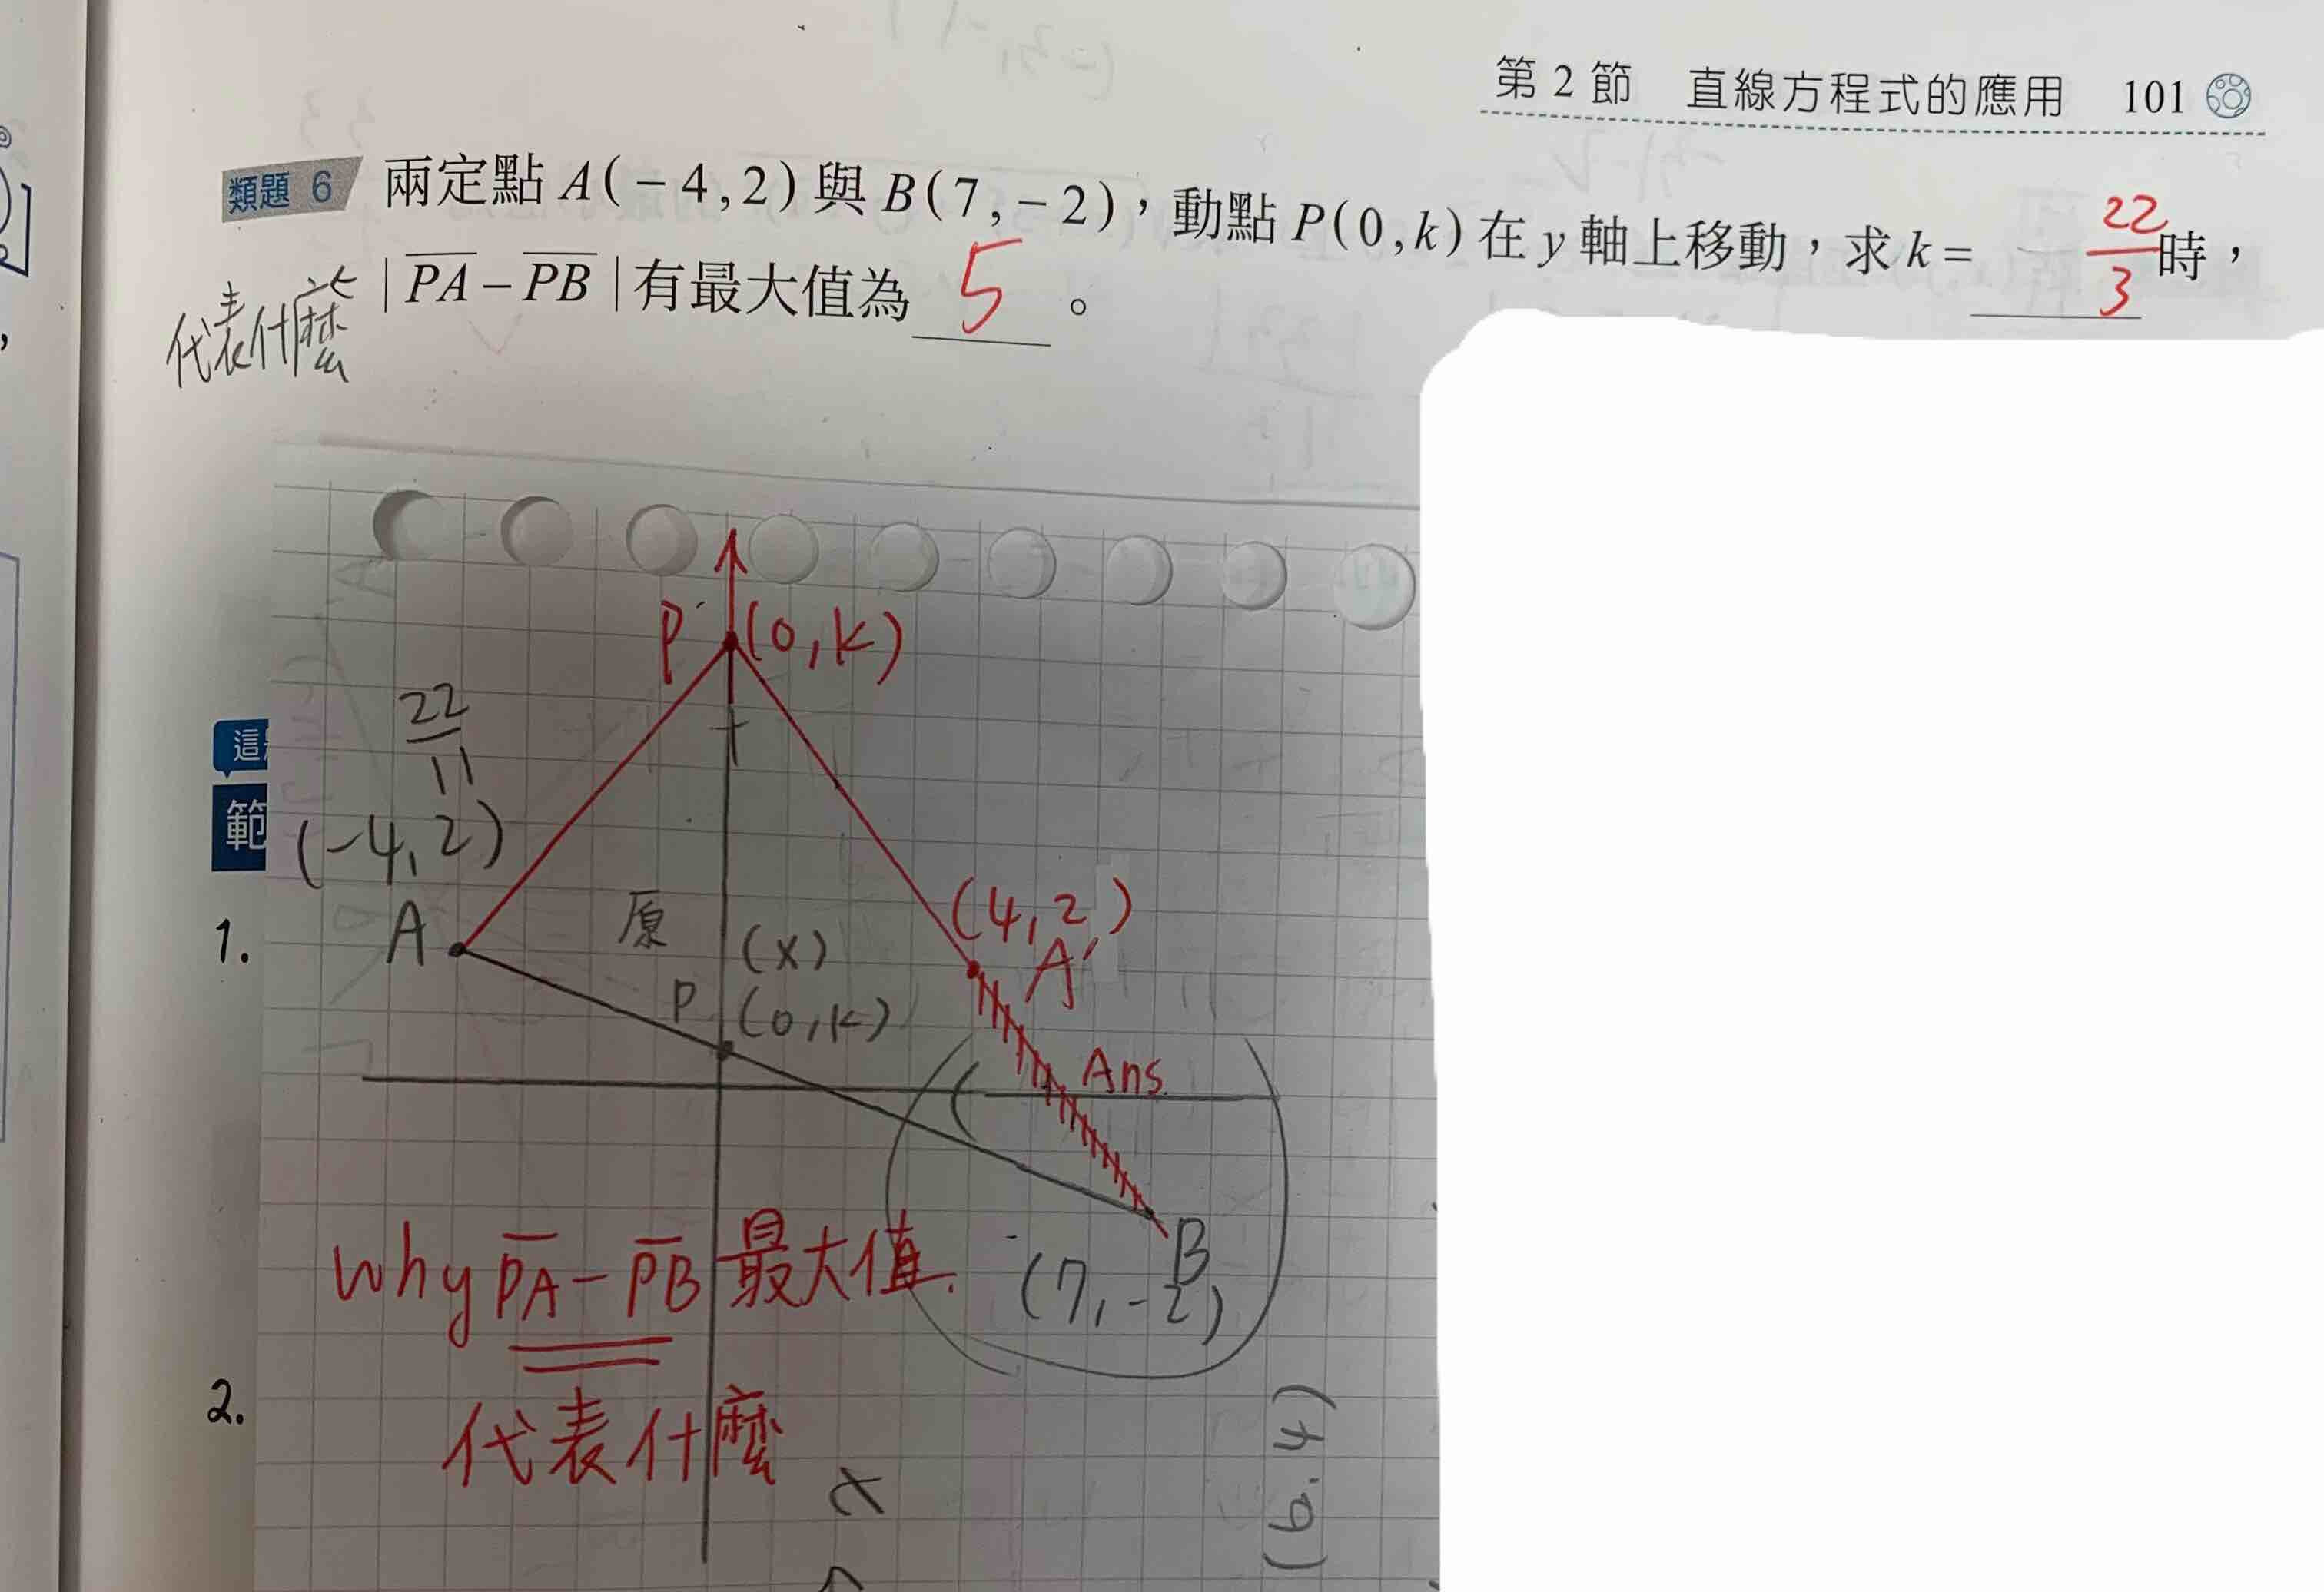 第 2 節 直線方程式的應用 101
類題 6 兩定點 A(－4,2) 與 B(7,－2)，動點 P(0,k) 在 y 軸上移動，求 k＝ 22/3 時，
|PA－PB| 有最大值為 5 。
代表什麼
P (0,k)
22/11
這
範
(-4,2)
(4,2)
1.
A
原
(x)
A'
P (0,k)
Ans.
B
why PA－PB 最大值.
(7,-2)
2.
代表什麼